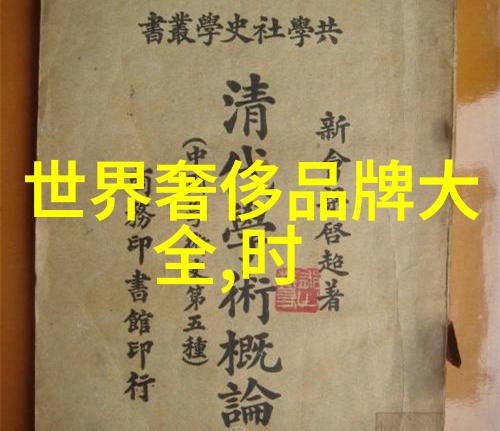 世界奢侈品牌大
全,时
共學社史學叢書
新會啓超著
清代學術概論
(中史第五種)
商務印書館印行